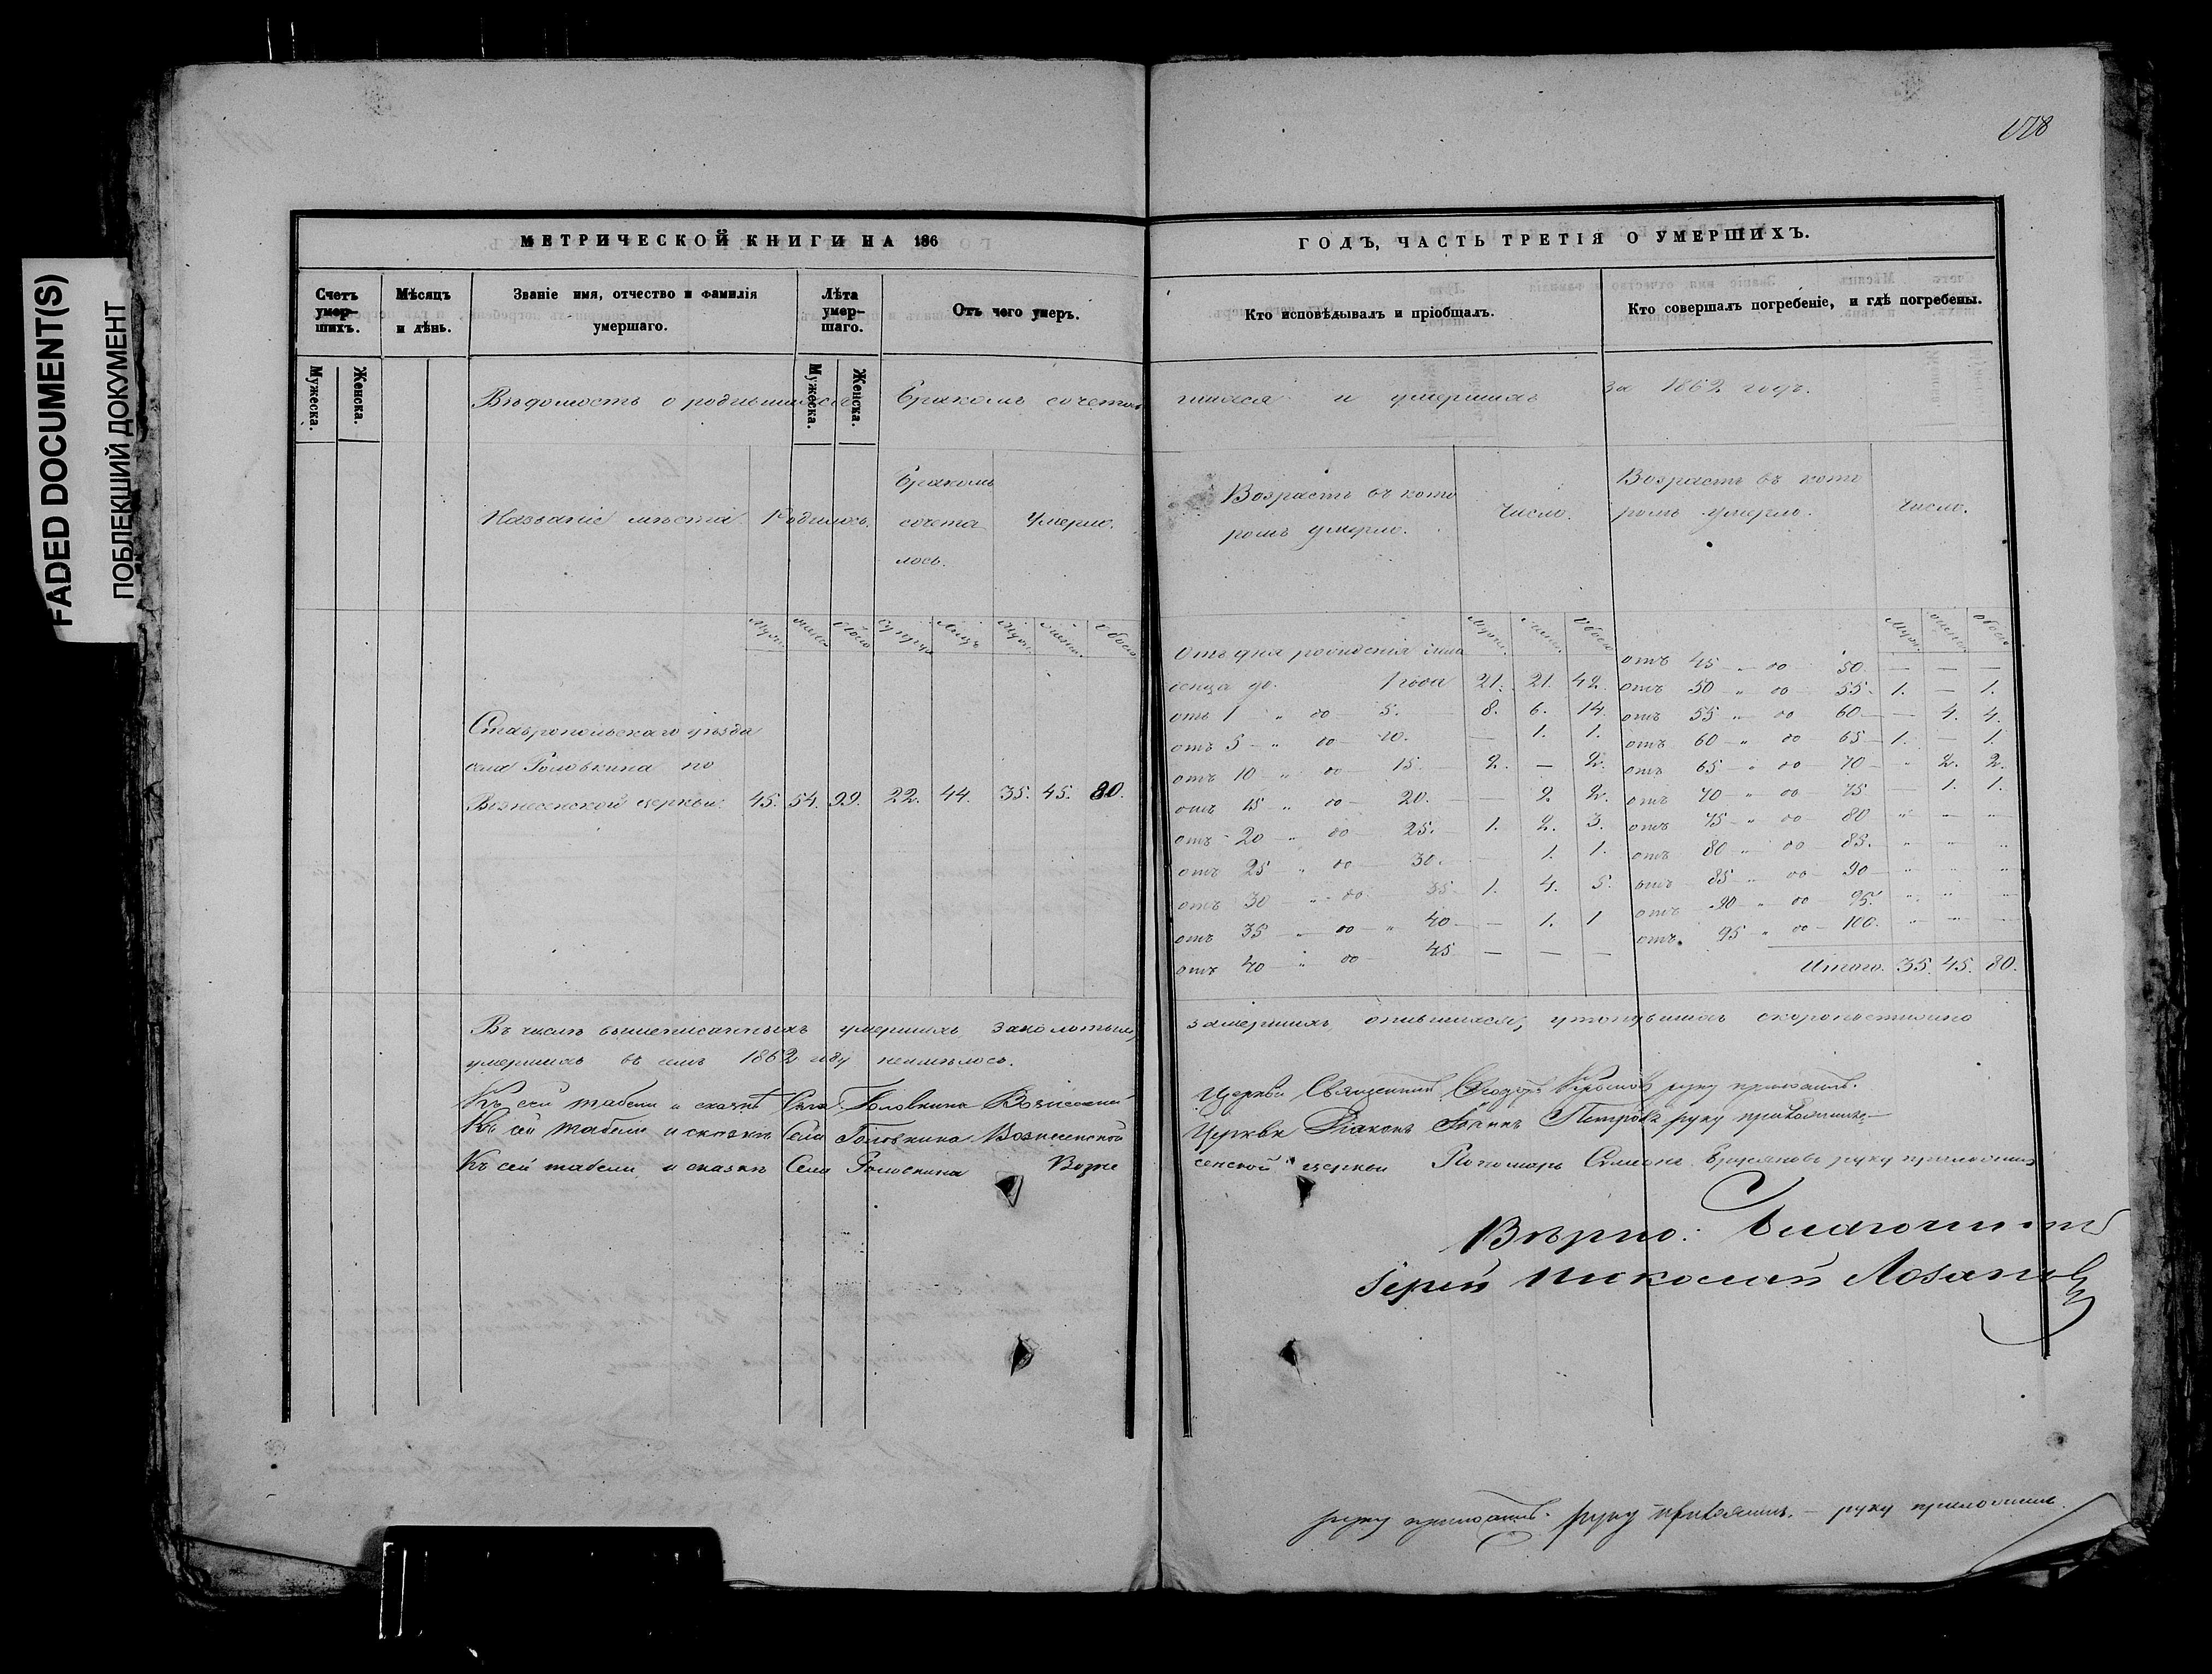 FADED DOCUMENT(S)
ПОБЛЕКШИЙ ДОКУМЕНТ
МЕТРИЧЕСКОЙ КНИГИ НА 186
Счетъ умер-шихъ.
Мѣсяцъ и дѣнь.
Званіе имя, отчество и фамилія умершаго.
Лѣта умер-шаго.
Отъ чего умеръ.
Мужеска.
Женска.
Мужеска.
Женска.
Вѣдомость о родившихся Бракомъ сочетав
Названіе мѣста
Родилось.
Бракомъ
сочета
лось.
Умерло.
Ставропольскаго уѣзда
села Головкина по
Вознесенской церкви. 45. 54. 99. 22. 44. 35. 45. 80.
Въ числѣ вышеписанныхъ умершихъ,
умершихъ въ семъ 1862 году неимѣлось.
Къ сей табели и сказкѣ Села Головкина
Къ сей табели и сказкѣ Села Головкина Вознесенской
Къ сей табели и сказкѣ Села Головкина Возне
ГОДЪ, ЧАСТЬ ТРЕТІЯ О УМЕРШИХЪ.
Кто исповѣдывалъ и пріобщалъ.
Кто совершалъ погребеніе, и гдѣ погребены.
шихся и умершихъ за 1862 годъ.
Возрастъ въ кото
ромъ умерло.
Число.
Возрастъ въ кото
ромъ умерло.
Число.
Отъ дня рожденія
до 1 года 21. 21. 42.
отъ 1 " до 5. 8. 6. 14.
отъ 5 " до 10. — 1. 1.
отъ 10 " до 15. 2. — 2.
отъ 15 " до 20. — 2. 2.
отъ 20 " до 25. 1. 2. 3.
отъ 25 " до 30. — 1. 1.
отъ 30 " до 35 1. 4. 5.
отъ 35 " до " 40 — 1. 1
отъ 40 " до 45 — — —
отъ 45 " до 50. — — —
отъ 50 " до 55. 1. — 1.
отъ 55 " до 60 — 4. 4.
отъ 60 " до 65 1. — 1.
отъ 65 " до 70 " 2. 2.
отъ 70 " до 75 — 1. 1.
отъ 75 " до 80 " " "
отъ 80 " до 85. " " "
отъ 85 " до 90 " " "
отъ 90 " до 95. " " "
отъ 95 " до 100. " " "
Итого. 35. 45. 80.
замерзшихъ, опившихся, утонувшихъ скоропостижно
Церкви Священникъ руку приложилъ.
Церкви Діаконъ Іоаннъ Петровъ руку приложилъ
сенской церкви Пономарь руку приложилъ
Вѣрно: Благочинный
Іерей Николай
руку приложилъ. руку приложилъ. — руку приложилъ.